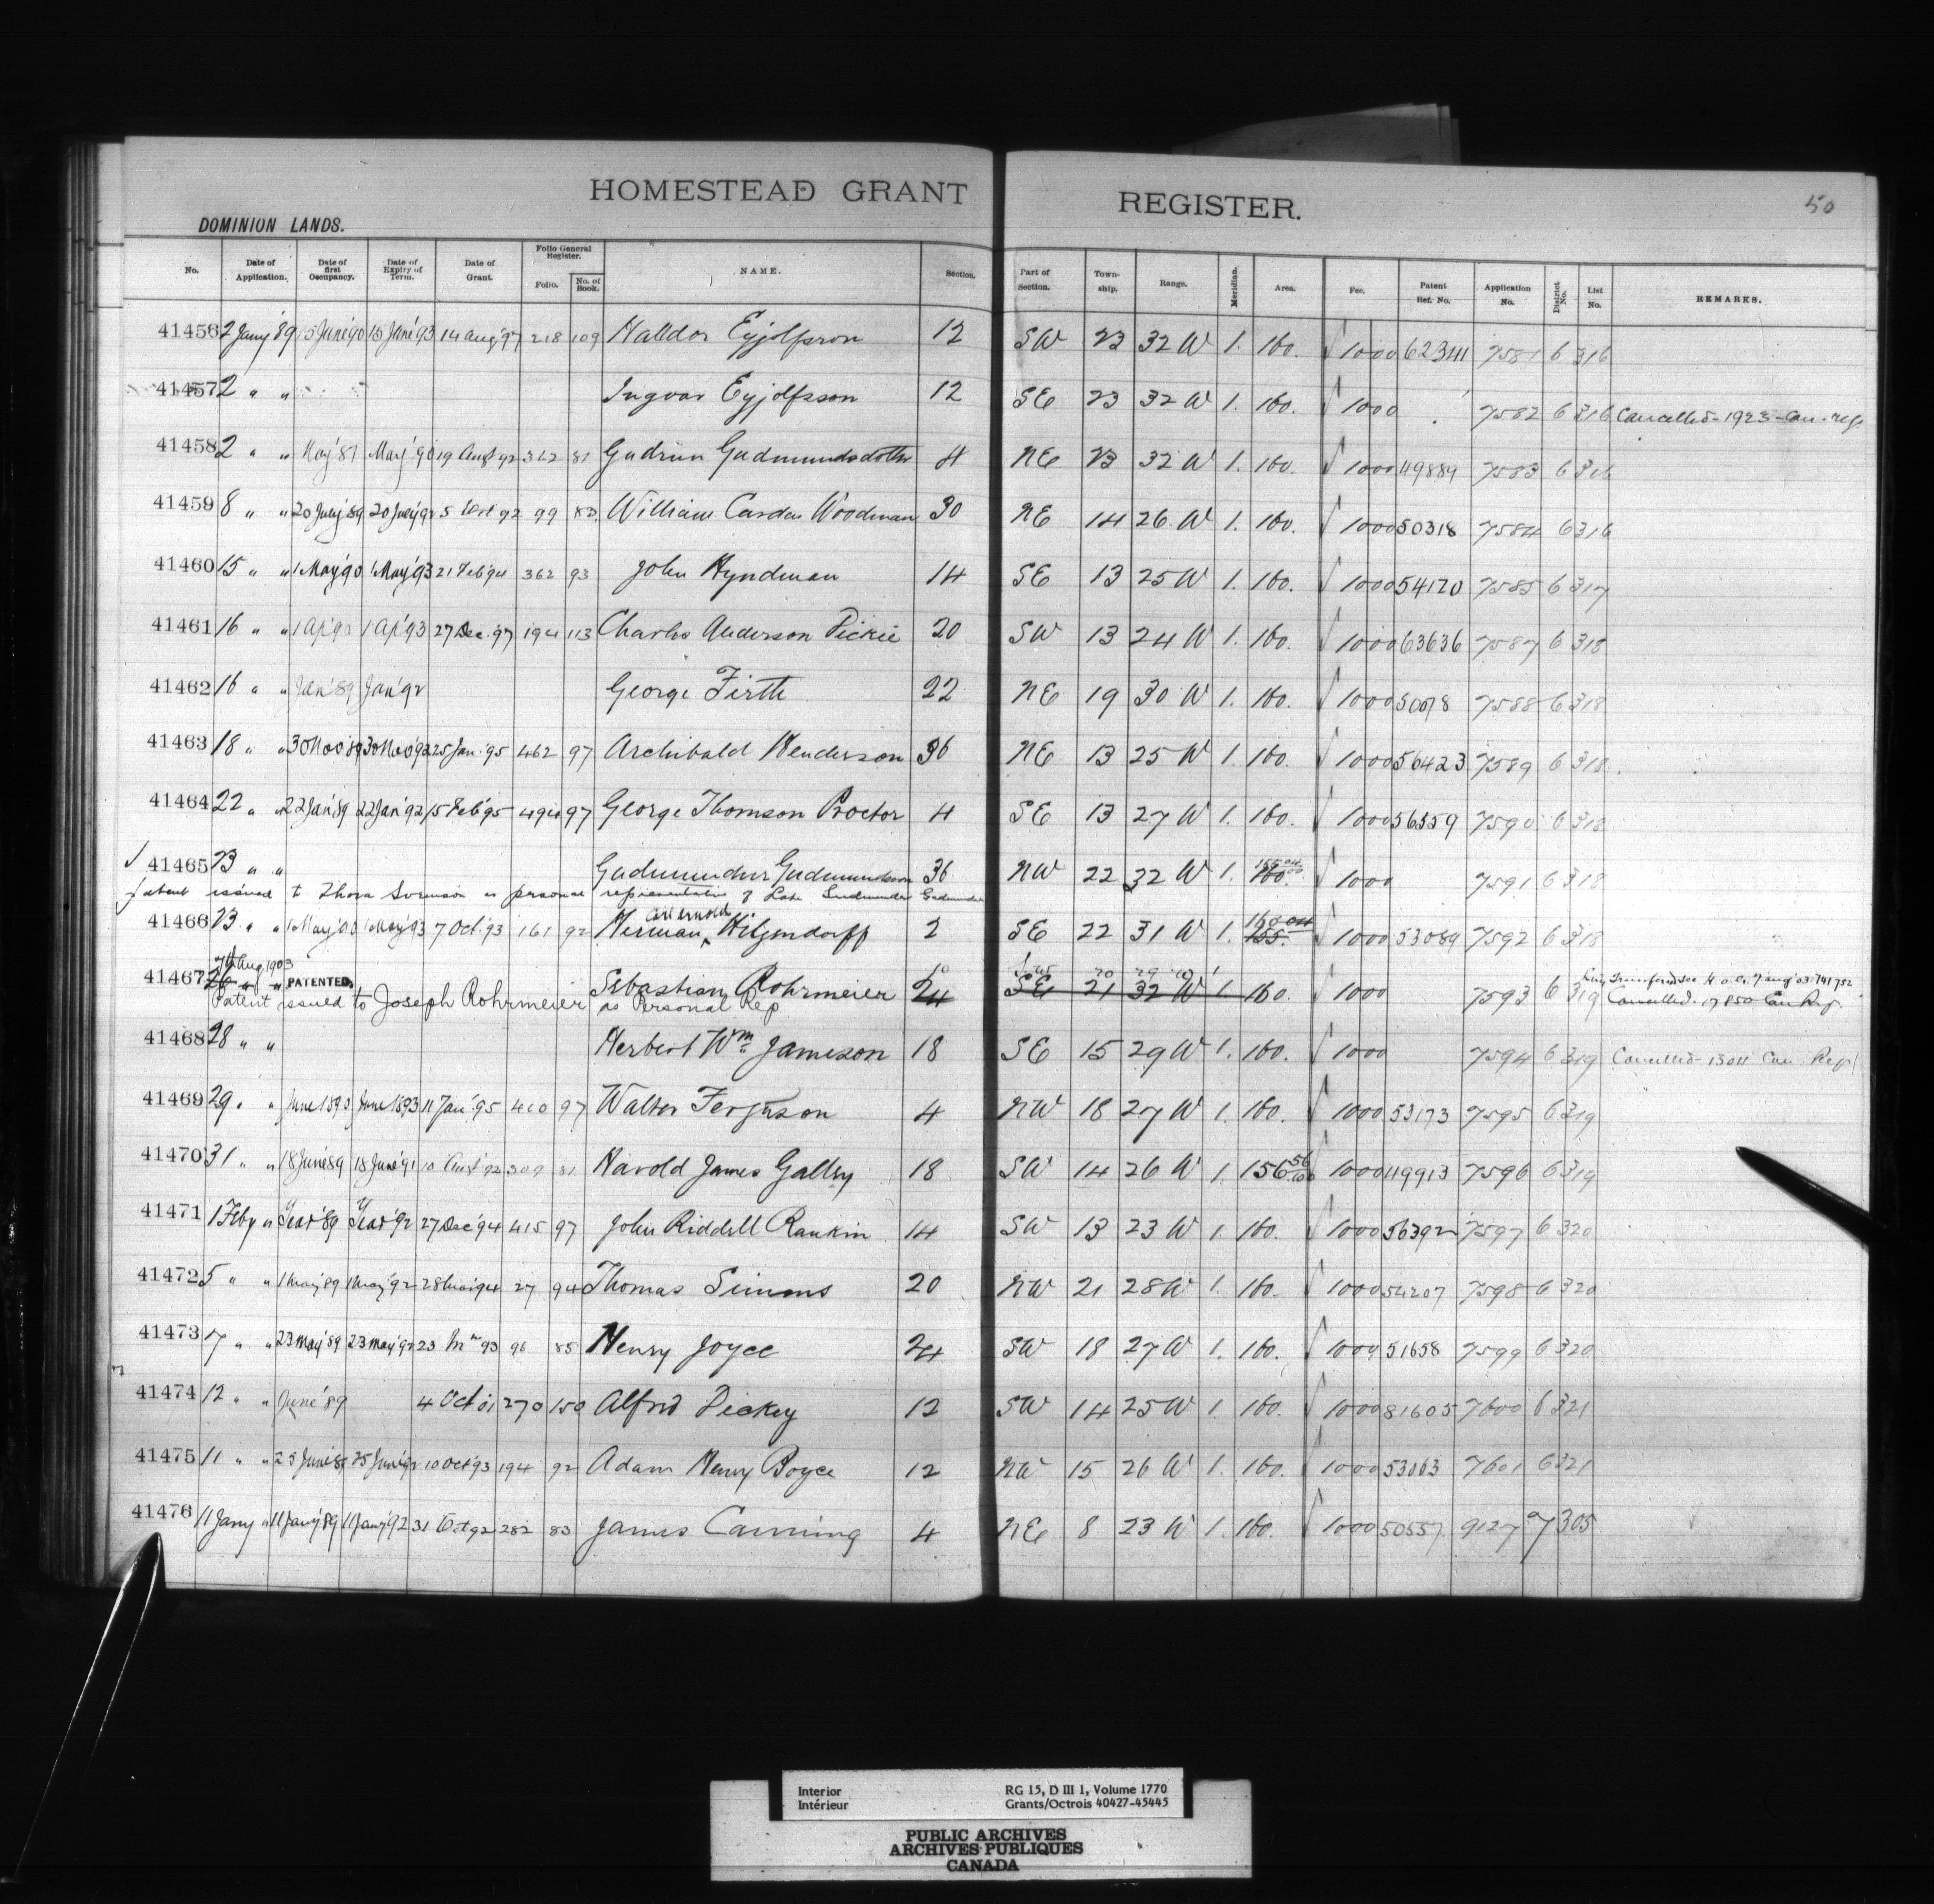 HOMESTEAD GRANT REGISTER. 50
DOMINION LANDS.
No. Date of Application. Date of first Occupancy. Date of Expiry of Term. Date of Grant. Folio General Register. Folio. No. of Book. NAME. Section. Part of Section. Town-ship. Range. Meridian. Area. Fee. Patent Ref. No. Application No. District No. List No. REMARKS.
41456 2 Jany '89 15 June '90 15 June '93 14 Aug '97 218 109 Halldor Eyjolfsson 12 SW 23 32 W 1. 160. √ 1000 62341 7581 6 316
41457 2 " " Ingvar Eyjolfsson 12 SE 23 32 W 1. 160. √ 1000 7582 6 316 Cancelled - 1923 - Can. reg.
41458 2 " " May '87 May '90 19 Augt 92 312 81 Gudrun Gudmundsdotter 4 NE 23 32 W 1. 160. √ 1000 49889 7583 6 316
41459 8 " " 20 July '89 20 July '92 5 Oct 92 99 83 William Carden Woodman 30 NE 14 26 W 1. 160. √ 1000 50318 7584 6 316
41460 15 " " 1 May '90 1 May '93 21 Feb '94 362 93 John Hyndman 14 SE 13 25 W 1. 160. √ 1000 54170 7585 6 317
41461 16 " " 1 Ap '90 1 Ap '93 27 Dec. '97 194 113 Charles Anderson Pickie 20 SW 13 24 W 1. 160. √ 1000 63636 7587 6 318
41462 16 " " Jan '89 Jan '92 George Firth 22 NE 19 30 W 1. 160. √ 1000 7588 6 318
41463 18 " " 30 Nov '89 30 Nov '92 25 Jan. '95 462 97 Archibald Henderson 36 NE 13 25 W 1. 160. √ 1000 56423 7589 6 318
41464 22 " " 22 Jan '89 22 Jan '92 15 Feb '95 494 97 George Thomson Proctor 4 SE 13 27 W 1. 160. √ 1000 56559 7590 6 318
√ 41465 23 " " Gudmundur Gudmundsson 36 NW 22 32 W 1. 160. √ 1000 7591 6 318
Patent issued to Thora Sveinson as personal representative of Late Gudmundur Gudmundsson
41466 23 " " 1 May '90 1 May '93 7 Oct. '93 161 92 Herman Carl Arnold Hilgendorff 2 SE 22 31 W 1. 155. √ 1000 53089 7592 6 318
7th Aug 1903
41467 26 " " PATENTED. Sebastian Rohrmeier 24 SE 21 32 W 1. 160. √ 1000 7593 6 319 Cancelled. 17850 Can Reg.
Patent issued to Joseph Rohrmeier as Personal Rep
41468 28 " " Herbert Wm Jameson 18 SE 15 29 W 1. 160. √ 1000 7594 6 319 Cancelled - 13011 Can Reg
41469 29 " " June 1890 June 1893 11 Jan '95 410 97 Walter Ferguson 4 NW 18 27 W 1. 160. √ 1000 53173 7595 6 319
41470 31 " " 18 June 89 18 June '91 10 Augt '92 309 81 Harold James Galley 18 SW 14 26 W 1. 156 56/100 √ 1000 49913 7596 6 319
41471 1 Feby " Year '89 Year '92 27 Dec '94 415 97 John Riddell Rankin 14 SW 13 23 W 1. 160. √ 1000 56392 7597 6 320
41472 5 " " 1 May '89 1 May '92 28 Mar '94 27 94 Thomas Simms 20 NW 21 28 W 1. 160. √ 1000 54207 7598 6 320
41473 7 " " 23 May '89 23 May '92 23 93 96 85 Henry Joyce 24 SW 18 27 W 1. 160. √ 1000 51658 7599 6 320
41474 12 " " June '89 4 Oct 01 270 150 Alfred Pickey 12 SW 14 25 W 1. 160. √ 1000 81605 7600 6 321
41475 11 " " 25 June '89 25 June '92 10 Oct '93 194 92 Adam Henry Boyce 12 NW 15 26 W 1. 160. √ 1000 53063 7601 6 321
41476 11 Jany " 11 Jany '89 11 Jany '92 31 Oct 92 282 83 James Canning 4 NE 8 23 W 1. 160. √ 1000 50557 9127 7 305
Interior RG 15, D III 1, Volume 1770
Intérieur Grants/Octrois 40427-45445
PUBLIC ARCHIVES
ARCHIVES PUBLIQUES
CANADA